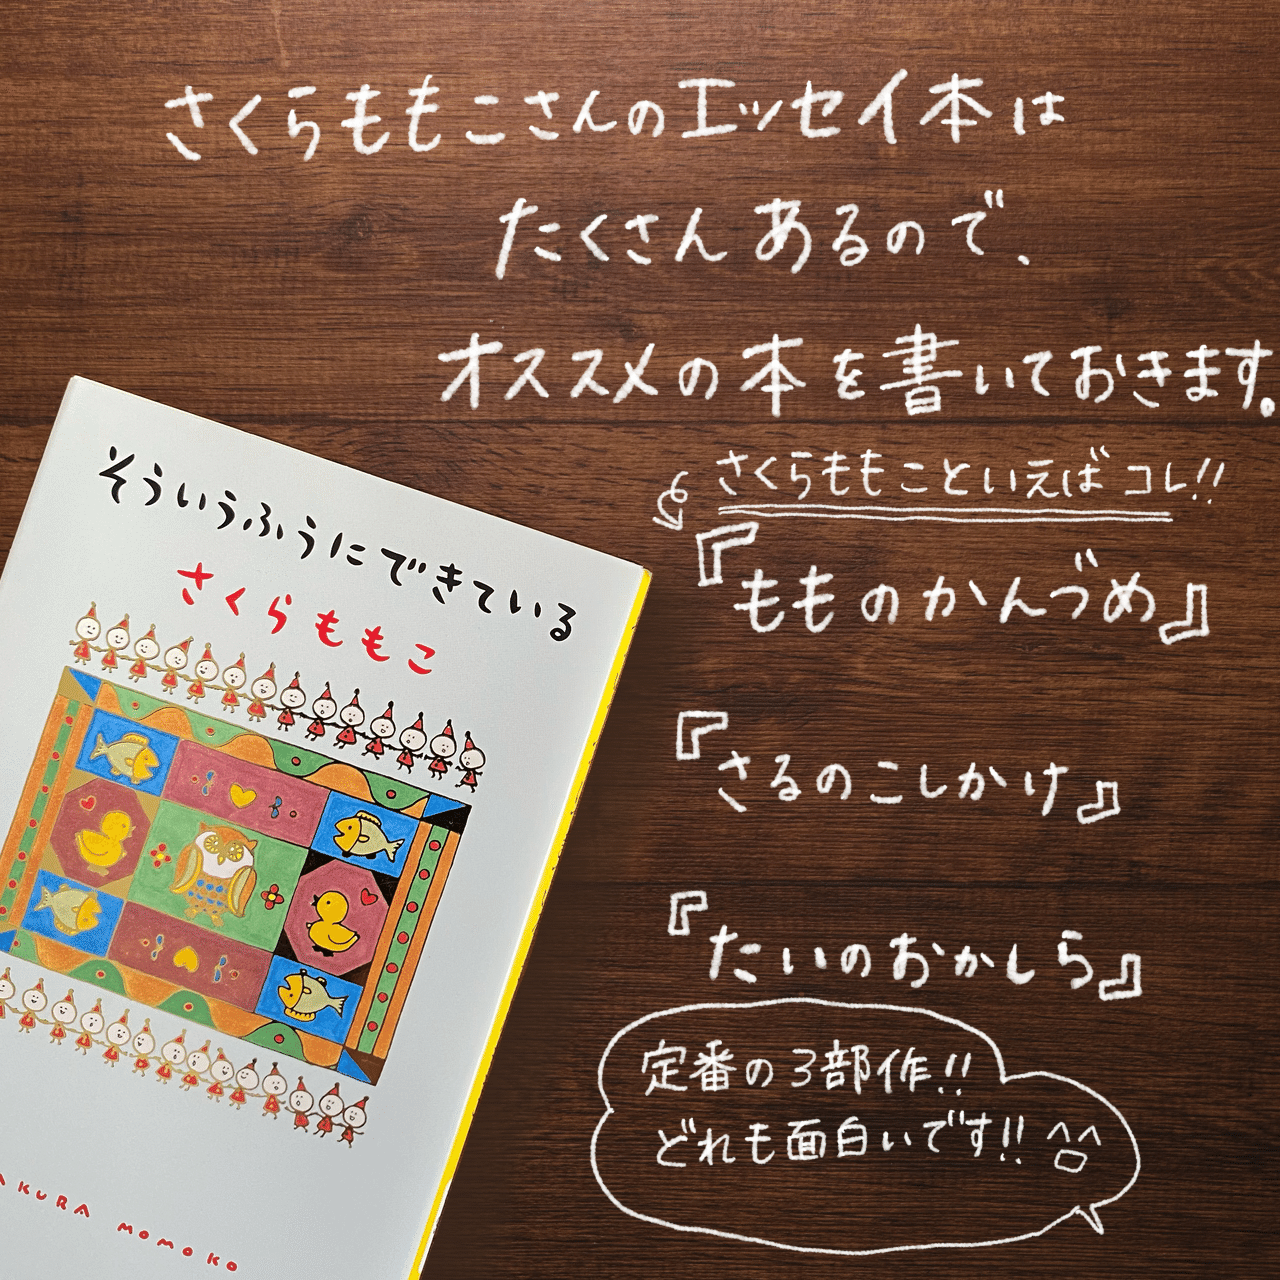 さくらももこさんのエッセイ本は
たくさんあるので、
オススメの本を書いておきます。
さくらももこといえばコレ!!
『もものかんづめ』
『さるのこしかけ』
『たいのおかしら』
定番の3部作!!
どれも面白いです!!
そういうふうにできている
さくらももこ
AKURA MOMOKO